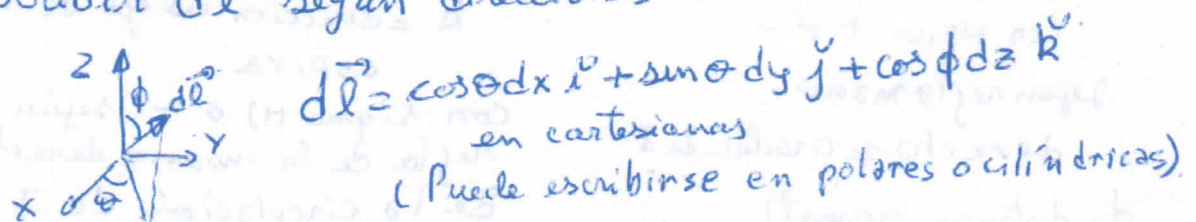 dl según
Z φ dl⃗ dl⃗ = cosθ dx ǐ + sinθ dy ǰ + cosφ dz ǩ
Y en cartesianas
X θ (Puede escribirse en polares o cilíndricas)